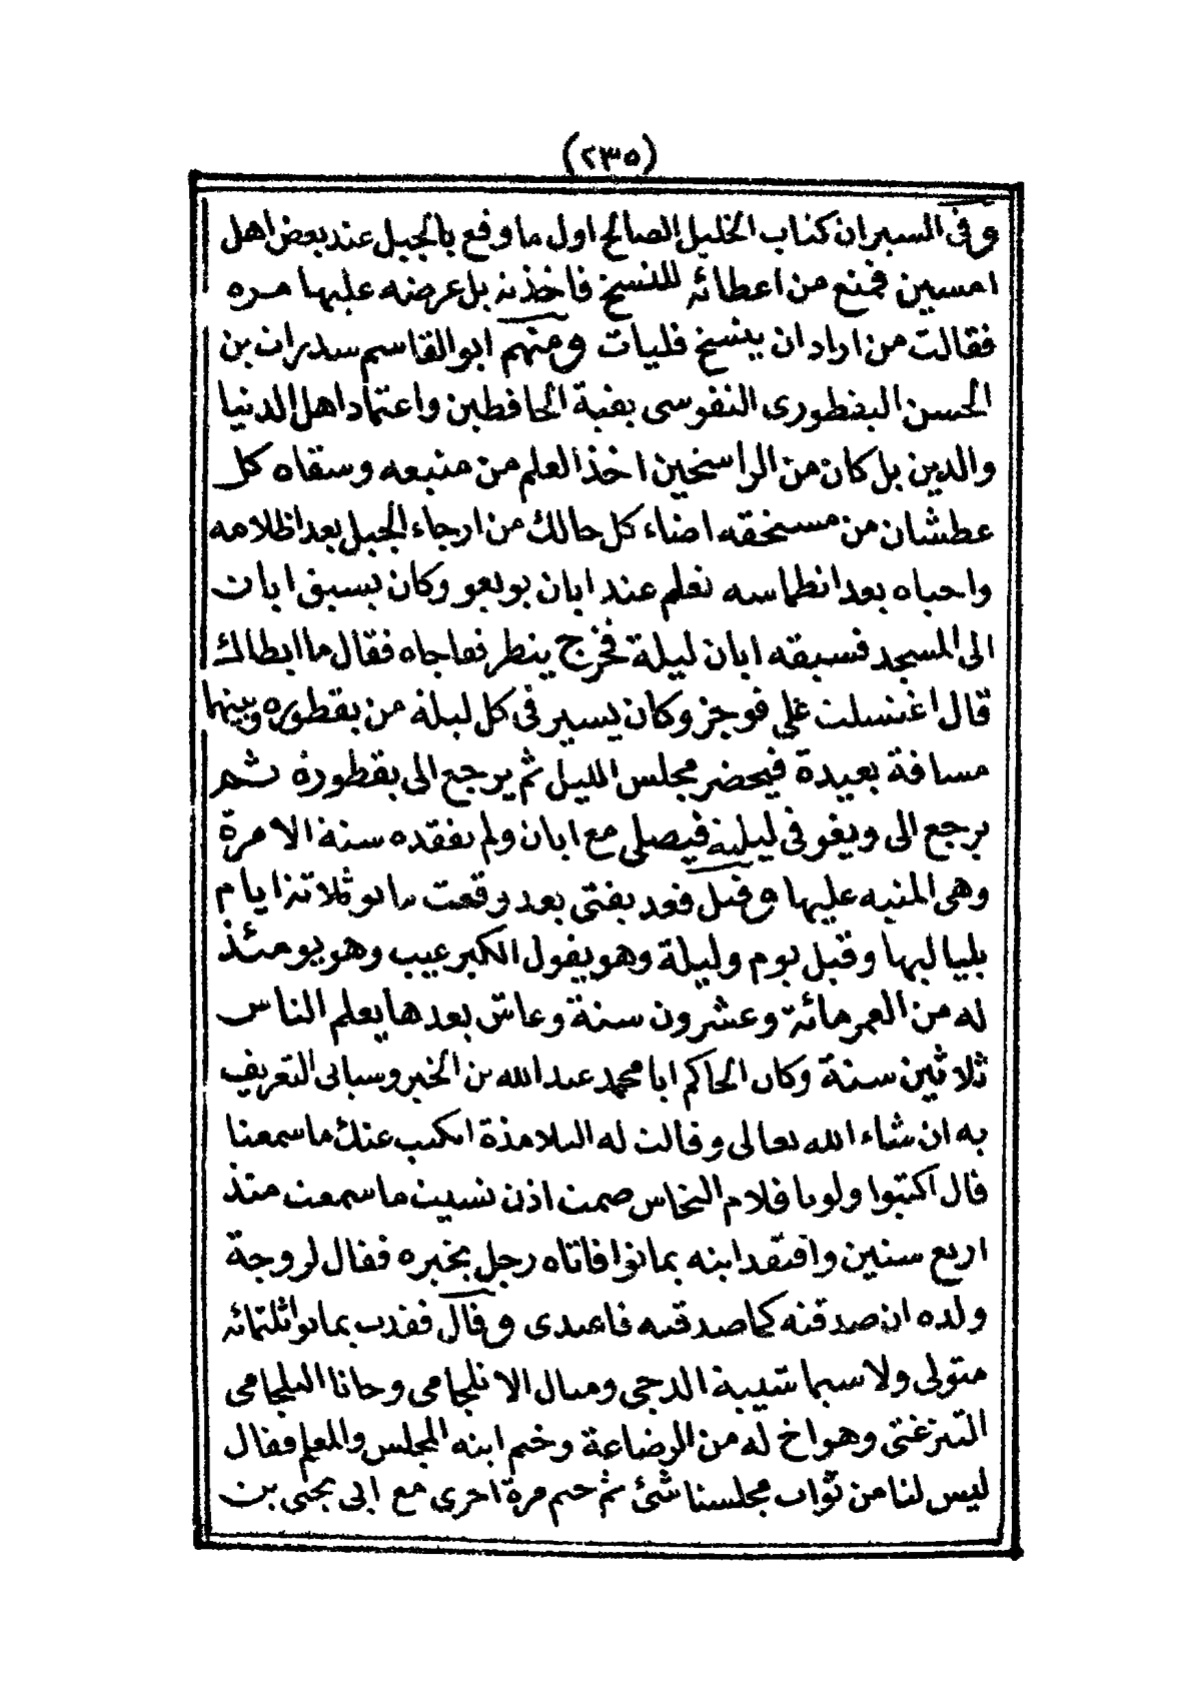 (٢٣٥)
وفى السير ان كتاب الخليل الصالح اول ما وقع بالجبل عند بعض اهل
امسين فمنع من اعطائه للنسخ فاخذته بل عرضه عليها مره
فقالت من اراد ان ينسخ فليات ومنهم ابو القاسم سدرات بن
الحسن البغطورى النفوسى بقية الحافظين واعتماد اهل الدنيا
والدين بل كان من الراسخين اخذ العلم من منبعه وسقاه كل
عطشان من مستحقه اضاء كل حالك من ارجاء الجبل بعد اظلامه
واحياه بعد انطماسه تعلم عند ابان بويغو وكان يسبق ابات
الى المسجد فسبقه ابان ليلة فخرج ينظر فعاجاه فقال ما ابطاك
قال اغتسلت على فوجز وكان يسير فى كل ليلة من بقطوره وبينهما
مسافة بعيدة فيحضر مجلس الليل ثم يرجع الى بقطورة ثم
يرجع الى ويغو فى ليلته فيصلى مع ابان ولم يفقده سنة الا مرة
وهى المنبه عليها وقيل قعد يفتى بعد وقعت مانو ثلاثة ايام
بلياليها وقيل يوم وليلة وهو يقول الكبر عيب وهو يومئذ
له من العمر مائة وعشرون سنة وعاش بعدها يعلم الناس
ثلاثين سنة وكان الحاكم ابا محمد عبد الله بن الخير وسياتى التعريف
به ان شاء الله تعالى وقالت له التلامذة انكتب عنك ما سمعنا
قال اكتبوا ولو يا فلام النخاس صمت اذن نسيت ما سمعت منذ
اربع سنين وافتقد ابنه بمانوا فاتاه رجل يخبره فقال لزوجة
ولده ان صدقته كما صدقته فاعتدى وقال فقدت بمانوا ثلثمائة
متولى ولا سيما شيبة الدجى وميال الانلجامى وحانا اليلجامى
التنزغتى وهو اخ له من الرضاعة وختم ابنه المجلس والمعلم فقال
ليس لنا من ثواب مجلسنا شئ ثم ختم مرة اخرى مع ابى يحيى بن